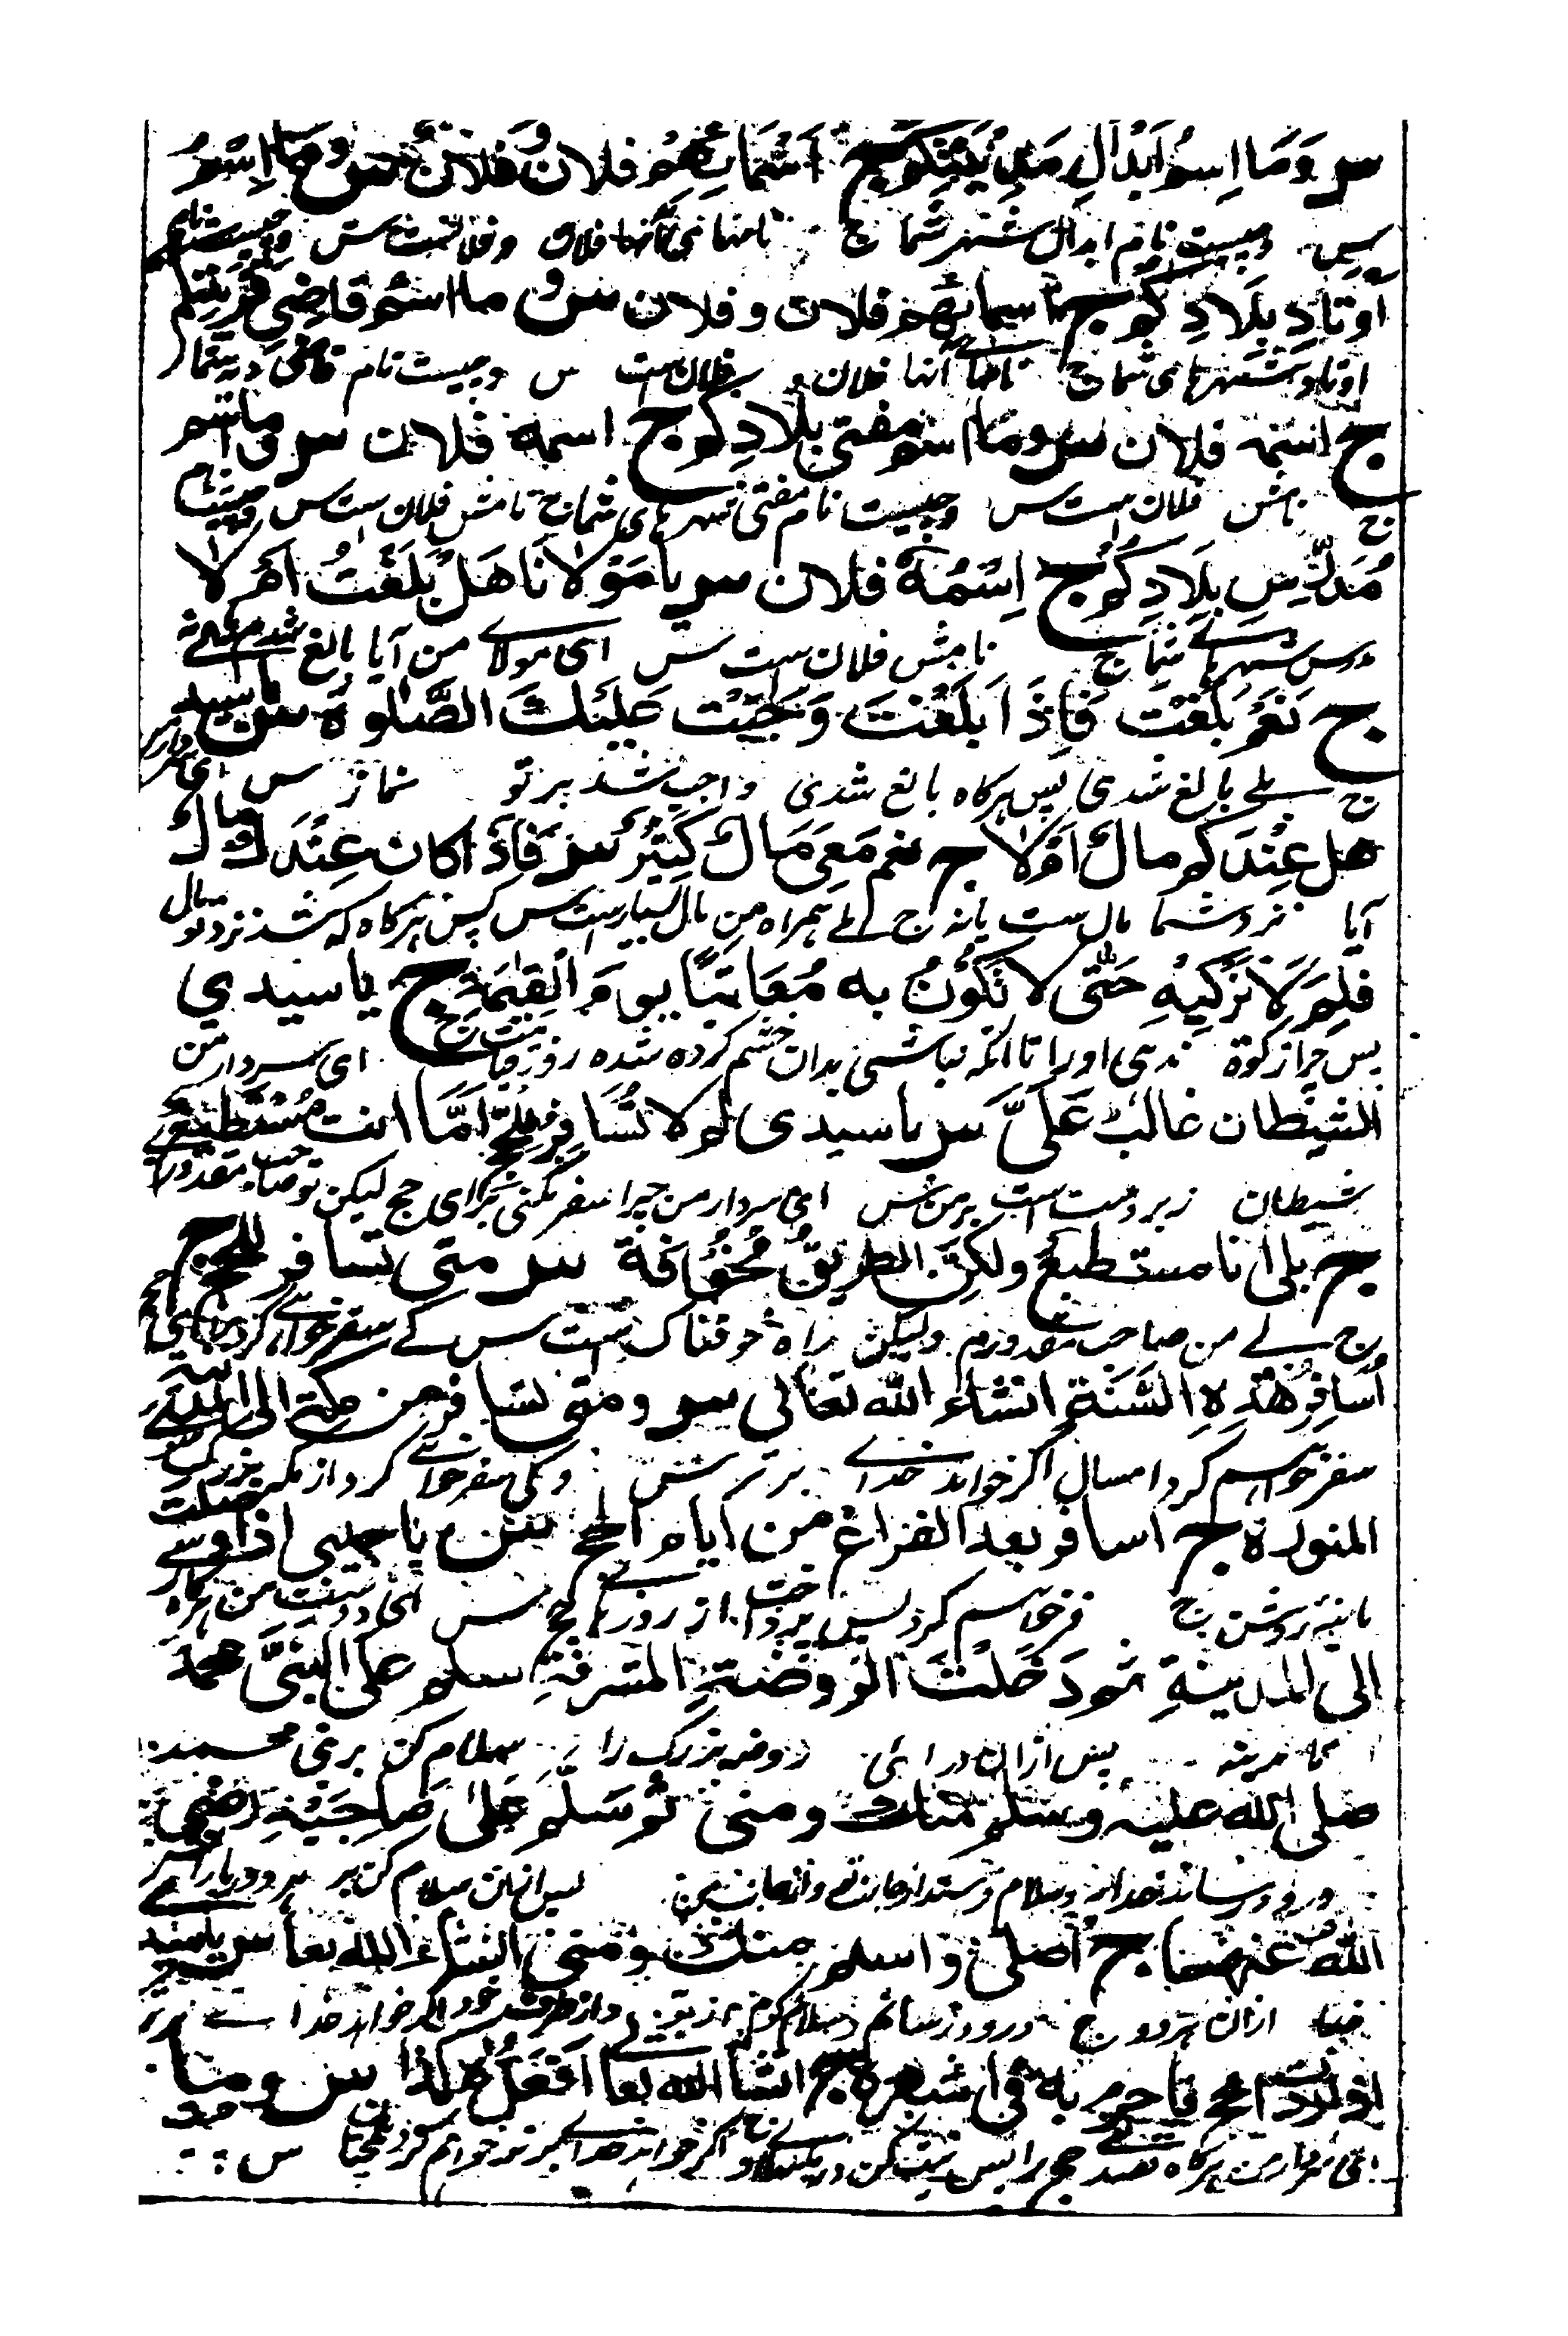 س و وما اسم ابدال مدينتكم ج اسمائهم فلان و فلان س و ما اسم
س وچیست نام ابدال شهر شما ج نامهای آنها فلان و فلانست س وچیست نام
اوتاد بلادكم ج اسمائهم فلان و فلان س و ما اسم قاضي قريتكم
اوتاد شهرهای شما ج نامهائے آنها فلان و فلان است س وچیست نام قاضی دیه شما
ج اسمه فلان س وما اسم مفتي بلادكم ج اسمه فلان س و ما اسم
ج نامش فلان است س وچیست نام مفتی شهرهای شما ج نامش فلان است س وچیست نام
مُدَرِّسِ بِلَادِكُمْ ج اِسْمُهُ فلان س يا مَوْلانَا هَلْ بَلَغْتُ اَمْ لا
مدرس شهرهائے شما ج نامش فلان ست س ای مولائے من آیا بالغ شدم
ج نَعَمْ بَلَغْتَ فَاِذَا بَلَغْتَ وَجَبَتْ عَلَيْكَ الصَّلٰوةُ س يا سيد
ج بلے بالغ شدی پس هرگاه بالغ شدی واجب شد بر تو نماز س ای سردار
هل عِنْدَكم مال اَمْ لا ج نعم مَعِي مَالٌ كَثِيْرٌ س فَاِذَا كان عِنْدَك مال
آیا نزد شما مال ست یا نه ج بلے همراه من مال بسیارست س پس هرگاه که شد نزد تو مال
فَلِمَ لَا تُزَكِّيْهِ حَتّٰى لا تَكُوْنُ به مُعَاتَبًا يوم القِيٰمَةِ ج يا سيدي
پس چرا زکوة ندهی او را تا آنکه نباشی بدان خشم کرده شده روز قیامت ج ای سردار من
الشيطان غالب عَلَيَّ س يا سيدي لم لا تُسَافِرُ لِلْحَجِّ اَمَّا انت مستطيع
شیطان زبردست است بر من س ای سردار من چرا سفر نکنی برای حج لیکن تو صاحب مقدوری
ج بلى انا مستطيع ولكن الطريق مُخَوِّفَة س متى تسافر للحج ج
ج بلے من صاحب مقدورم ولیکن راه خوفناک ست س کے سفر خواهی کرد برای حج
اُسَافِرُ هٰذِهِ السَّنَةِ انشاء الله تعالى س ومتى تسافر من مكة الى المدينة
سفر خواهم کرد امسال اگر خواهد خدائے برتر س و کی سفر خواهی کرد از مکه بزرگ
المنورة ج اسافر بعد الفراغ من ايام الحج س يا حبيبي اذا وصلت
مدینۂ روشن ج سفر خواهم کرد پس پرداخت از روزهائے حج س ای دوست من هرگاه
الى المدينة ثم دَخَلْتَ الروضةِ المشرفةِ سلم على النبيّ محمد
بمدینه پس ازان درائی روضه بزرگ را سلام کن بر نبی محمد
صلى الله عليه وسلم منك ومني ثم سَلِّمْ عَلىٰ صَاحِبَيْهِ رَضِيَ
درود رساند خدا او و سلام فرستد از جانب تو و از جانب من پس ازان سلام کن بر هر دو یار او
الله عنهما ج اُصلي و اسلم منك و مني انشاء الله تعا س يا سيد
ازان هردو ج درود رسانم و سلام کنم از تو و از طرف خود اگر خواهد خدائے برتر
اذا اردت الحج فاحرم به في اشهره ج انشا الله تعا افعل هكذا س و ما
ای سردار من هرگاه قصد حج پس نیت کن ج اگر خواهد خدائے برتر خواهم کرد همچنان س